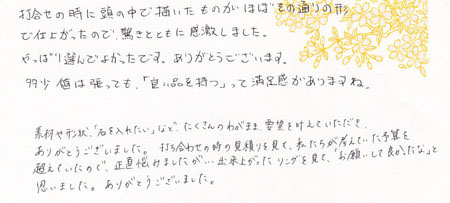 打合せの時に頭の中で描いたものがほぼその通りの形
で仕上がったので、驚きとともに感激しました。
やっぱり選んでよかったです。ありがとうございます。
多少値は張っても、「良い品を持つ」って満足感がありますね。
素材や形状、「石を入れたい」など、たくさんのわがまま、要望を叶えていただき、
ありがとうございました。打ち合わせの時の見積りを見て、私たちが考えていた予算を
越えていたので、正直悩みましたが…出来上がったリングを見て、「お願いして良かったな」と
思いました。ありがとうございました。